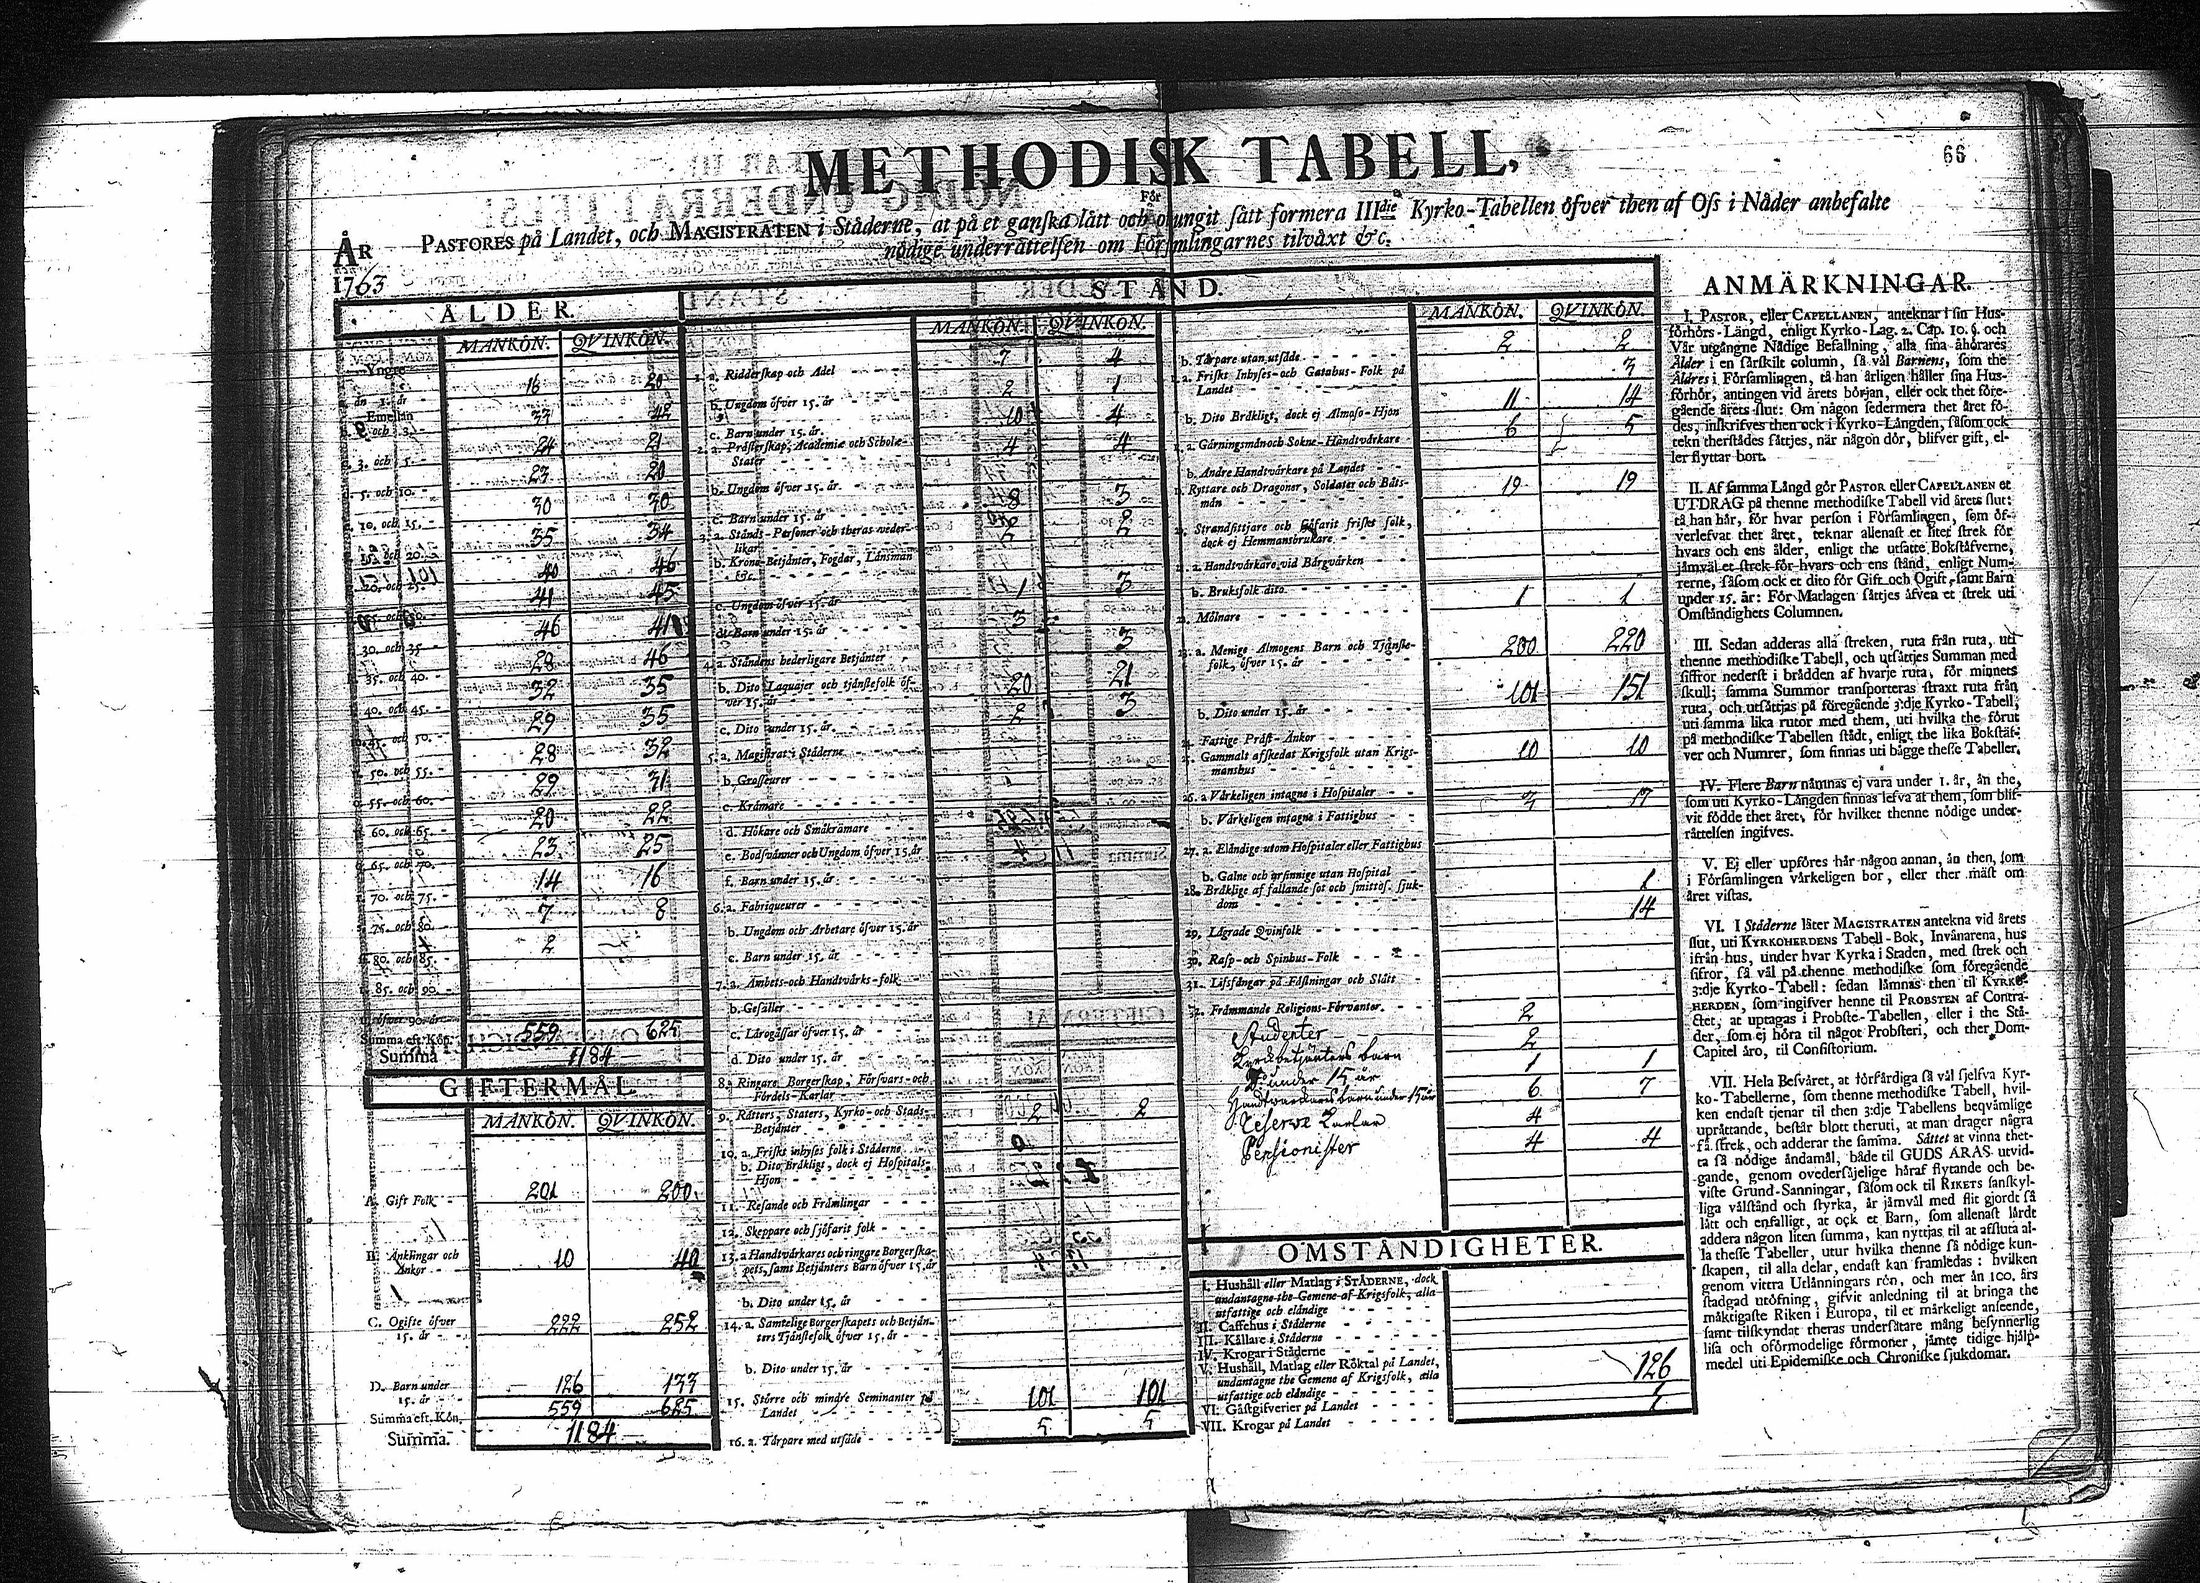 66
METHODISK TABELL,
För
PASTORES på Landet, och MAGISTRATEN i Städerne, at på et ganska lätt och otungit sätt formera IIIdie Kyrko-Tabellen öfver then af Oss i Nåder anbefalte
nödige underrättelsen om Församlingarnes tilväxt &c.
ÅR
1763
ÅLDER.
MANKÖN. QVINKÖN.
Yngre
än 1. år 18 20
Emellan
och 3. 33 42
3. och 5. 24 21
5. och 10. 27 20
10. och 15. 30 30
15. och 20. 35 34
20. och 25. 40 46
25. och 30. 41 45
30. och 35. 46 41
35. och 40. 28 46
40. och 45. 32 35
45. och 50. 29 35
50. och 55. 28 32
55. och 60. 29 31
60. och 65. 20 22
65. och 70. 23 25
70. och 75. 14 16
75. och 80. 7 8
80. och 85. 2
85. och 90.
öfver 90. år
Summa eft. Kön. 559 625
Summa 1184
GIFTERMÅL.
MANKÖN. QVINKÖN.
A. Gift Folk 201 200
B. Änklingar och
Änkor 10 40
C. Ogifte öfver
15. år 222 252
D. Barn under
15. år 126 133
Summa eft. Kön. 559 625
Summa. 1184
STÅND.
MANKÖN. QVINKÖN.
1. a. Ridderskap och Adel 7 4
b. Ungdom öfver 15. år 2 1
c. Barn under 15. år. 10 4
2. a. Prästerskap, Academiæ och Scholæ-
Stater 4 4
b. Ungdom öfver 15. år.
c. Barn under 15. år 8 3
3. a. Stånds-Personer och theras veder-
likar 2 2
b. Krono-Betjänter, Fogdar, Länsmän
&c.
c. Ungdom öfver 15. år 1 3
d. Barn under 15. år 3
4. a. Ståndens hederligare Betjänter 3
b. Dito Laquajer och tjänstefolk öf-
ver 15. år 20 21
c. Dito under 15. år. 2 3
5. a. Magistrat i Städerne
b. Grosseurer
c. Krämare
d. Hökare och Småkrämare
e. Bodsvänner och Ungdom öfver 15. år
f. Barn under 15. år.
6. a. Fabriqueurer
b. Ungdom och Arbetare öfver 15. år
c. Barn under 15. år
7. a. Ämbets- och Handtvärks-folk
b. Gesäller
c. Lärogåssar öfver 15. år
d. Dito under 15. år
8. Ringare Borgerskap, Försvars- och
Fördels-Karlar
9. Rätters, Staters, Kyrko- och Stads-
Betjänter 2 2
10. a. Friskt inhyses folk i Städerne
b. Dito Bräkligt, dock ej Hospitals-
Hjon
11. Resande och Främlingar
12. Skeppare och sjöfarit folk
13. a Handtvärkares och ringare Borgerska-
pets, samt Betjänters Barn öfver 15. år
b. Dito under 15. år
14. a. Samtelige Borgerskapets och Betjän-
ters Tjänstefolk öfver 15. år
b. Dito under 15. år
15. Större och mindre Seminanter på
Landet 101 101
16. a. Torpare med utsäde 5 5
MANKÖN. QVINKÖN.
b. Torpare utan utsäde 2 2
a. Friskt Inhyses- och Gatuhus-Folk på
Landet 3
b. Dito Bräkligt, dock ej Almoso-Hjon 11 14
a. Gärningsmän och Sokne-Handtvärkare 6 5
b. Andre Handtvärkare på Landet
Ryttare och Dragoner, Soldater och Båts-
män 19 19
Strandsittjare och sjöfarit friskt folk,
dock ej Hemmansbrukare
a. Handtvärkare vid Bärgvärken
b. Bruksfolk dito
Mölnare 1 1
a. Menige Almogens Barn och Tjänste-
folk, öfver 15. år 200 220
b. Dito under 15. år 101 151
Fattige Präst-Änkor
Gammalt afskedat Krigsfolk utan Krigs-
manshus 10 10
26. a Värkeligen intagne i Hospitaler
b. Värkeligen intagne i Fattighus 3 17
27. a. Eländige utom Hospitaler eller Fattighus
b. Galne och ursinnige utan Hospital
28. Bräklige af fallande sot och smittos. sjuk-
dom 1
29. Lägrade Qvinfolk 14
30. Rasp- och Spinhus-Folk
31. Lifsfångar på Fästningar och Slått
32. Främmande Religions-Förvanter.
Studenter 2
Kyrckbetjänters barn 2
under 15 år 1 1
Handtvärckares barn under 15 år 6 7
Reserve Karlar 4
Pensionister 4 4
OMSTÄNDIGHETER.
I. Hushåll eller Matlag i STÄDERNE, dock
undantagne the Gemene af Krigsfolk, alla
utfattige och eländige
II. Caffehus i Städerne
III. Källare i Städerne
IV. Krogar i Städerne
V. Hushåll, Matlag eller Röktal på Landet,
undantagne the Gemene af Krigsfolk, alla
utfattige och eländige 126
VI. Gästgifverier på Landet 1
VII. Krogar på Landet
ANMÄRKNINGAR.
I. PASTOR, eller CAPELLANEN, anteknar i sin Hus-
förhörs-Längd, enligt Kyrko-Lag. 2. Cap. 10. §. och
Vår utgångne Nådige Befallning, alla sina åhörares
Ålder i en särskilt column, så väl Barnens, som the
Äldres i Församlingen, tå han årligen håller sina Hus-
förhör, antingen vid årets början, eller ock thet före-
gående årets slut: Om någon sedermera thet året fö-
des, inskrifves then ock i Kyrko-Längden, såsom ock
tekn therstädes sättjes, när någon dör, blifver gift, el-
ler flyttar bort.
II. Af samma Längd gör PASTOR eller CAPELLANEN et
UTDRAG på thenne methodiske Tabell vid årets slut:
tå han här, för hvar person i Församlingen, som öf-
verlefvat thet året, teknar allenast et litet strek för
hvars och ens ålder, enligt the utsatte Bokstäfverne,
jämväl et strek för hvars och ens stånd, enligt Num-
rerne, såsom ock et dito för Gift och Ogift, samt Barn
under 15. år: För Matlagen sättjes äfven et strek uti
Omständighets Columnen.
III. Sedan adderas alla streken, ruta från ruta, uti
thenne methodiske Tabell, och utsättjes Summan med
siffror nederst i brädden af hvarje ruta, för minnets
skull; samma Summor transporteras straxt ruta från
ruta, och utsättjas på föregående 3:dje Kyrko-Tabell,
uti samma lika rutor med them, uti hvilka the förut
på methodiske Tabellen städt, enligt the lika Bokstäf-
ver och Numrer, som finnas uti bägge thesse Tabeller.
IV. Flere Barn nämnas ej vara under 1. år, än the,
som uti Kyrko-Längden finnas lefva af them, som blif-
vit födde thet året, för hvilket thenne nödige under-
rättelsen ingifves.
V. Ej eller upföres här någon annan, än then, som
i Församlingen värkeligen bor, eller ther mäst om
året vistas.
VI. I Städerne låter MAGISTRATEN antekna vid årets
slut, uti KYRKOHERDENS Tabell-Bok, Invånarena, hus
ifrån hus, under hvar Kyrka i Staden, med strek och
sifror, så väl på thenne methodiske som föregående
3:dje Kyrko-Tabell: sedan lämnas then til KYRKO-
HERDEN, som ingifver henne til PROBSTEN af Contra-
ctet, at uptagas i Probste-Tabellen, eller i the Stä-
der, som ej höra til något Probsteri, och ther Dom-
Capitel äro, til Consistorium.
VII. Hela Besväret, at förfärdiga så väl sjelfva Kyr-
ko-Tabellerne, som thenne methodiske Tabell, hvil-
ken endast tjenar til then 3:dje Tabellens beqvämlige
uprättande, består blott theruti, at man drager några
få strek, och adderar the samma. Sättet at vinna thet-
ta så nödige ändamål, både til GUDS ÄRAS utvid-
gande, genom ovedersäjelige häraf flytande och be-
viste Grund-Sanningar, såsom ock til RIKETS sanskyl-
liga välstånd och styrka, är jämväl med flit gjordt så
lätt och enfalligt, at ock et Barn, som allenast lärdt
addera någon liten summa, kan nyttjas til at afsluta al-
la thesse Tabeller, utur hvilka thenne så nödige kun-
skapen, til alla delar, endast kan framledas: hvilken
genom vittra Utlänningars rön, och mer än 100. års
stadgad utöfning, gifvit anledning til at bringa the
mäktigaste Riken i Europa, til et märkeligt anseende,
samt tilskyndat theras undersåtare mång besynnerlig
lisa och oförmodelige förmoner, jämte tidige hjälp-
medel uti Epidemiske och Chroniske sjukdomar.